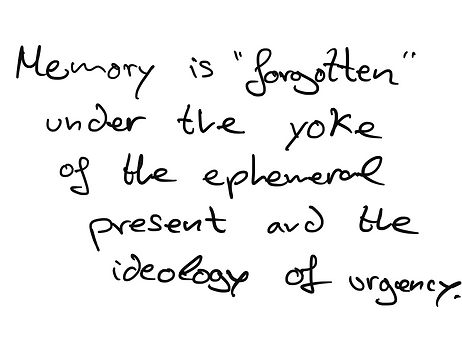 Memory is "forgotten"
under the yoke
of the ephemeral
present and the
ideology of urgency.